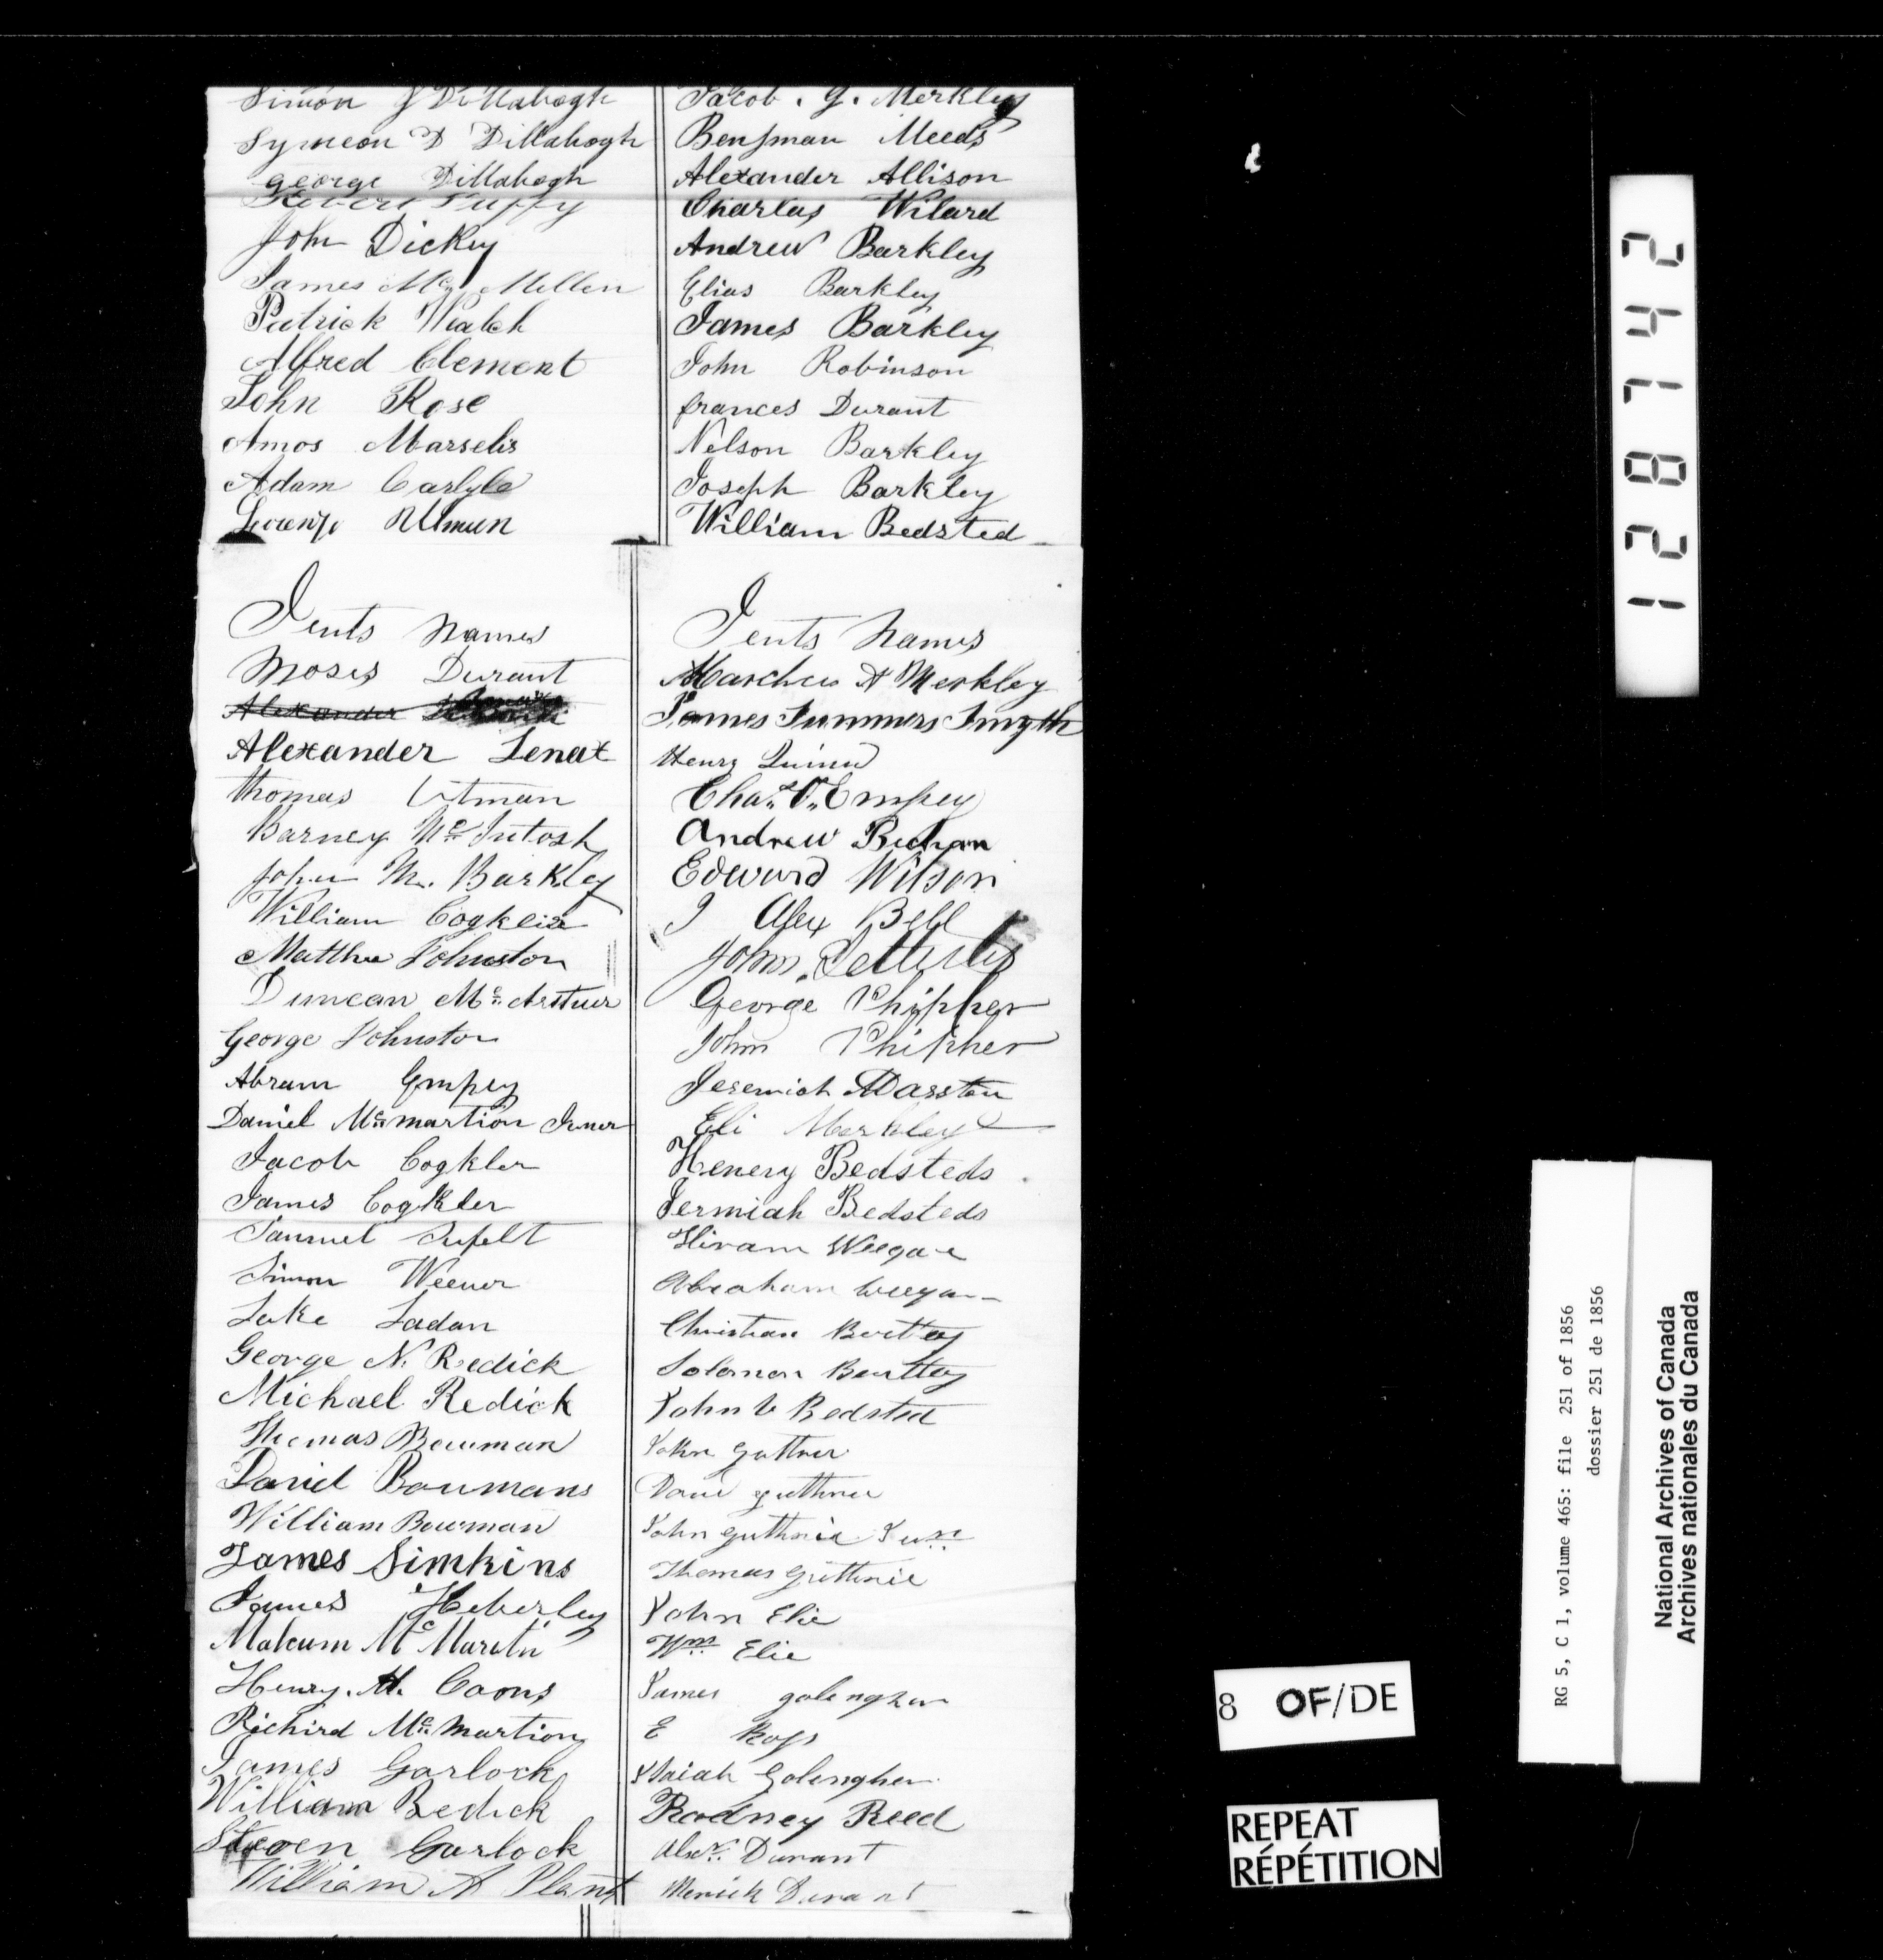 Simon J Dillabogh
Symeon D Dillabogh
george Dillabogh
Robert Duffy
John Dickey
James Mc Mellen
Patrick Walch
Alfred Clement
John Rose
Amos Marselis
Adam Carlyle
Lorenzo
Jacob . G. Merkley
Benjman Meeds
Alexander Allison
Charlas Wilard
Andrew Barkley
Elias Barkley
James Barkley
John Robinson
frances Durant
Nelson Barkley
Joseph Barkley
William Bedsted
Jents Names
Moses Durant
Alexander
Alexander Lenax
thomas Utman
Barney Mc Intosh
John M. Barkley
William
Matthu Johnston
Duncan Mc Arthur
George Johnston
Abram Empey
Daniel Mc martion
Jacob Cogkler
James Cogkler
Samuel Sufelt
Simon Weever
Luke Ladan
George N. Redick
Michael Redick
Thomas Bowman
David Boumans
William Bowman
James Simkins
James Heberley
Malcum Mc Martin
Henry. H. Coons
Richird Mc Martion
James Garlock
William Redick
Steven Garlock
William A Plant
Jents Names
A Merkley
James Summers Smyth
Henry
Chas. Empey
Andrew
Edward Wilson
J Alex Bell
John
George Phipher
John Phipher
Jeremiah Marsten
Eli Merkley
Henery Bedsteds
Jermiah Bedsteds
Hiram Weegar
Abraham weegar
Christian
Solomon
John Bedsted
John
guthrie
John guthrie Junr
Thomas guthrie
John Elie
Wm Elie
James
E
Isaiah
Rodney Reed
Alexr. Durant
Durant
128742
RG 5, C 1, volume 465: file 251 of 1856
dossier 251 de 1856
National Archives of Canada
Archives nationales du Canada
8 OF/DE
REPEAT
RÉPÉTITION